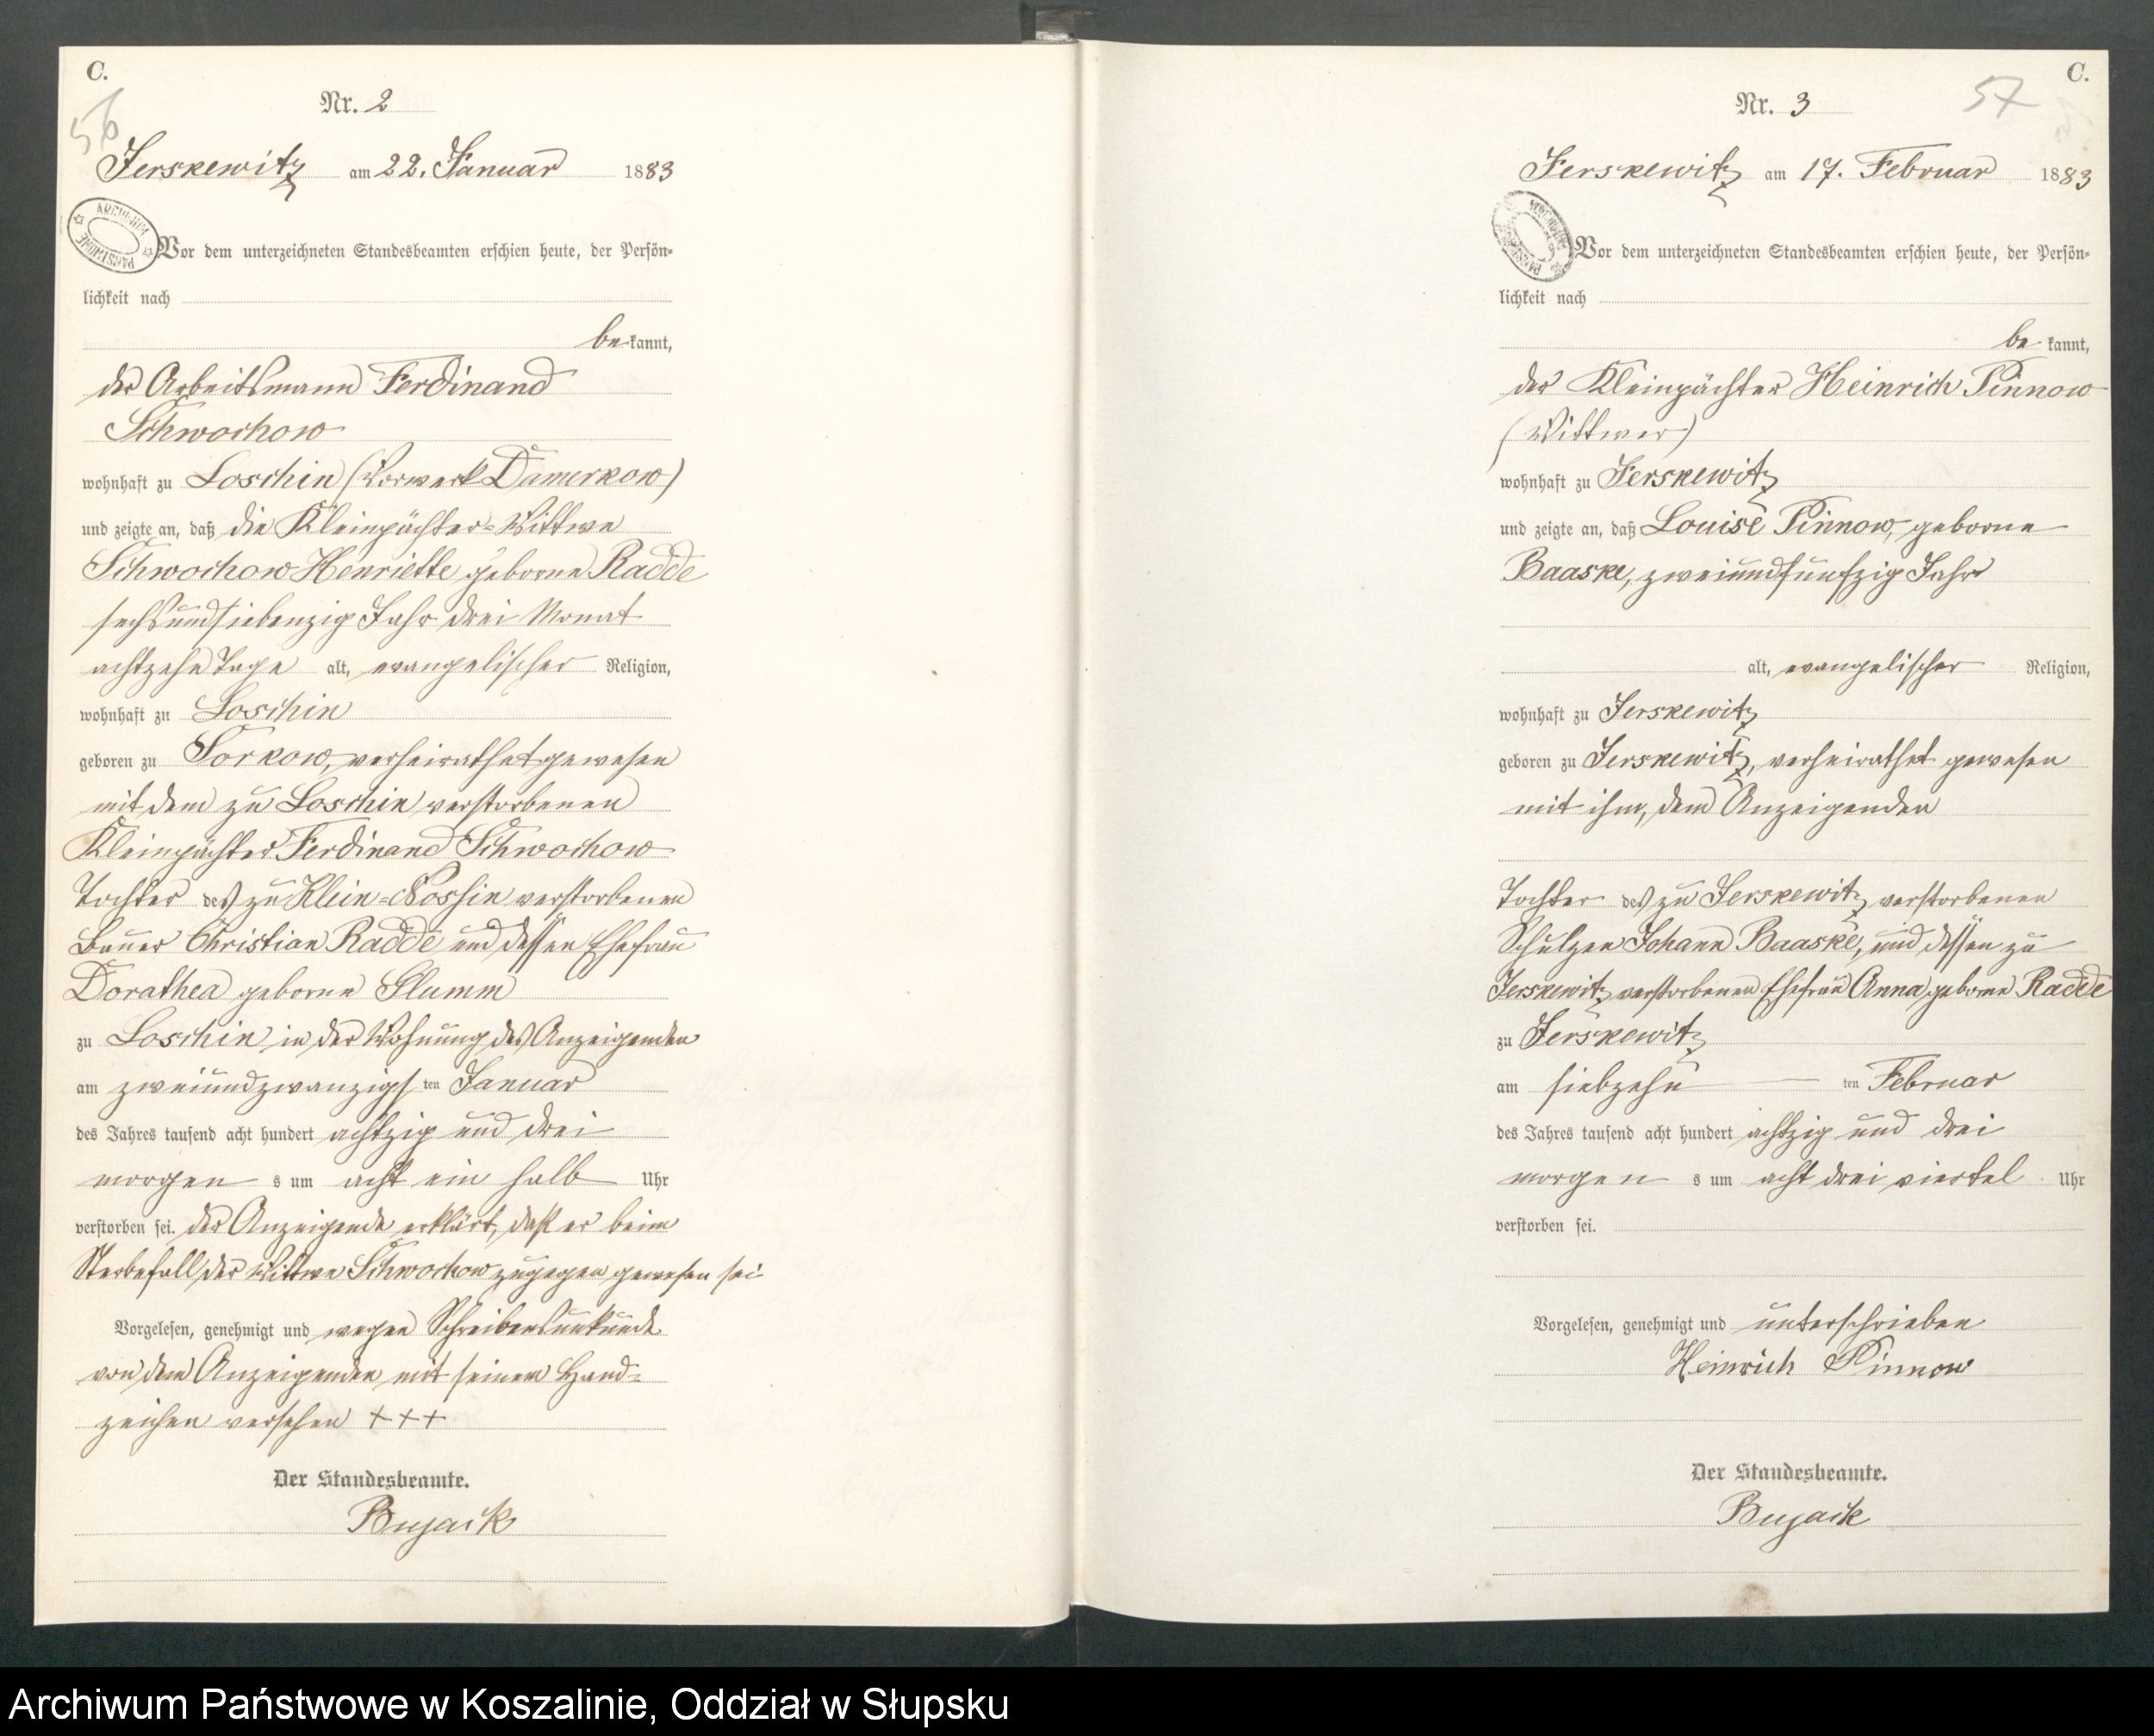 C.
56
Nr. 2
Jerskewitz am 22. Januar 1883
ARCHIWUM PAŃSTWOWE
Vor dem unterzeichneten Standesbeamten erschien heute, der Persön-
lichkeit nach
be kannt,
der Arbeitsmann Ferdinand
Schwochow
wohnhaft zu Loschin (Vorwerk Damerkow)
und zeigte an, daß die Kleinpächter-Wittwe
Schwochow Henriette geborne Radde
sechsundsiebenzig Jahr drei Monat
achtzehn Tage alt, evangelischer Religion,
wohnhaft zu Loschin
geboren zu Torkow, verheirathet gewesen
mit dem zu Loschin verstorbenen
Kleinpächter Ferdinand Schwochow
Tochter des zu Klein-Nossin verstorbenen
Bauer Christian Radde und dessen Ehefrau
Dorathea geborne Glumm
zu Loschin in der Wohnung des Anzeigenden
am zweiundzwanzigs ten Januar
des Jahres tausend acht hundert achtzig und drei
morgen s um acht ein halb Uhr
verstorben sei. der Anzeigende erklärt, daß er beim
Sterbefall der Wittwe Schwochow zugegen gewesen sei
Vorgelesen, genehmigt und wegen Schreibensunkunde
von dem Anzeigenden mit seinem Hand-
zeichen versehen +++
Der Standesbeamte.
Bujack
C.
57
Nr. 3
Jerskewitz am 17. Februar 1883
Vor dem unterzeichneten Standesbeamten erschien heute, der Persön-
lichkeit nach
be kannt,
der Kleinpächter Heinrich Pinnow
(Wittwer)
wohnhaft zu Jerskewitz
und zeigte an, daß Louise Pinnow, geborne
Baaske, zweiundfunfzig Jahr
alt, evangelischer Religion,
wohnhaft zu Jerskewitz
geboren zu Jerskewitz, verheirathet gewesen
mit ihm, dem Anzeigenden
Tochter des zu Jerskewitz verstorbenen
Schulzen Johann Baaske, und dessen zu
Jerskewitz verstorbenen Ehefrau Anna geborne Radde
zu Jerskewitz
am siebzehn ten Februar
des Jahres tausend acht hundert achtzig und drei
morgen s um acht drei viertel Uhr
verstorben sei.
Vorgelesen, genehmigt und unterschrieben
Heinrich Pinnow
Der Standesbeamte.
Bujack
Archiwum Państwowe w Koszalinie, Oddział w Słupsku